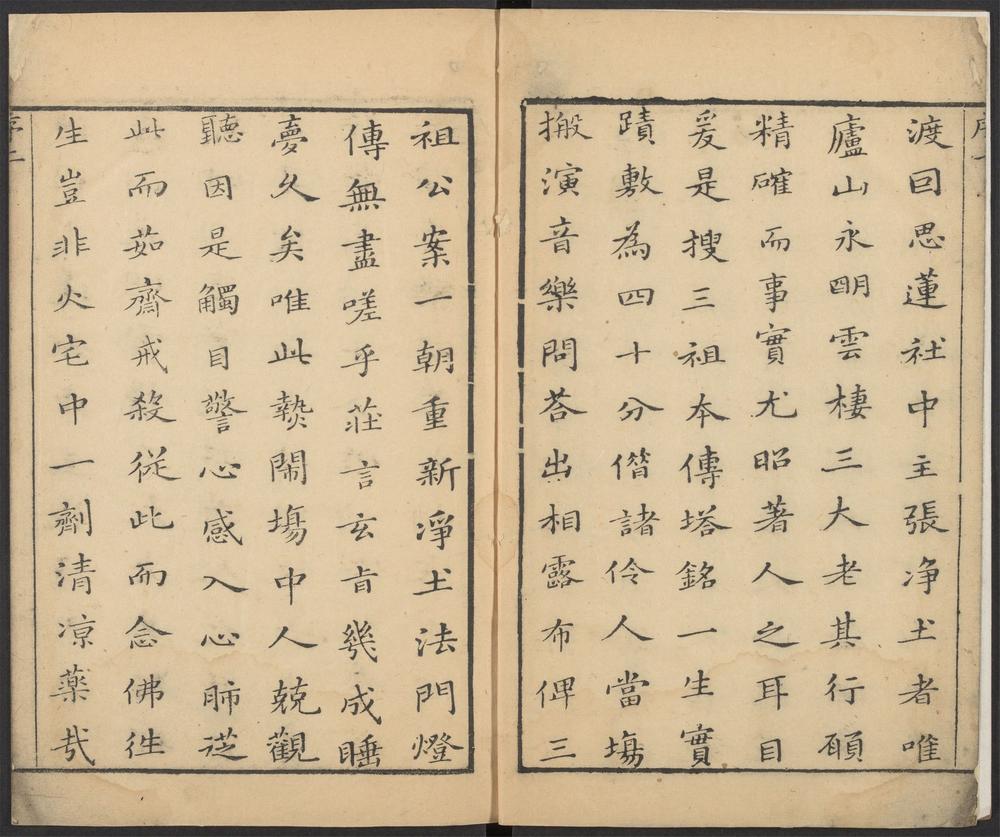 渡回思蓮社中主張净土者唯
廬山永明雲棲三大老其行願
精確而事實尤昭著人之耳目
爰是搜三祖本傳塔銘一生實
蹟敷為四十分僭諸伶人當塲
搬演音樂問荅出相露布俾三
祖公案一朝重新淨土法門燈
傳無盡嗟乎莊言玄旨幾成睡
夢久矣唯此𤍠閙塲中人兢觀
聽因是觸目警心感入心肺從
此而茹齋戒殺從此而念佛徃
生豈非火宅中一劑清凉藥哉
序二